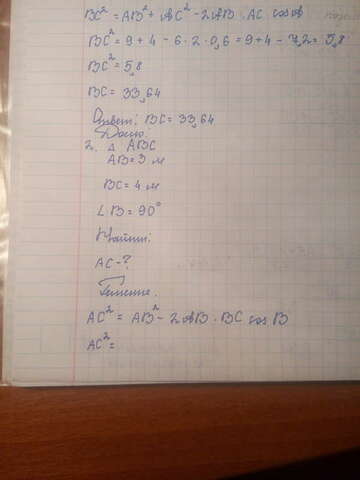 BC² = AB² + AC² - 2AB · AC cos A
BC² = 9 + 4 - 6 · 2 · 0,6 = 9 + 4 - 7,2 = 5,8
BC² = 5,8
BC = 33,64
Ответ: BC = 33,64
Дано:
2. △ ABC
AB = 3 м
BC = 4 м
∠ B = 90°
Найти:
AC - ?
Решение.
AC² = AB² - 2AB · BC cos B
AC² =